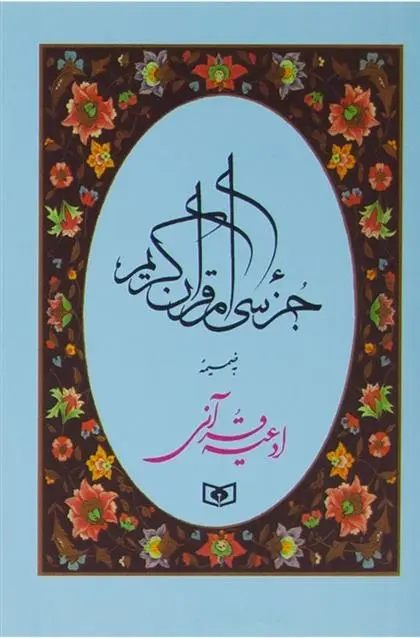 جزء سی ام قرآن کریم
به ضمیمهٔ
ادعیه قرآنی